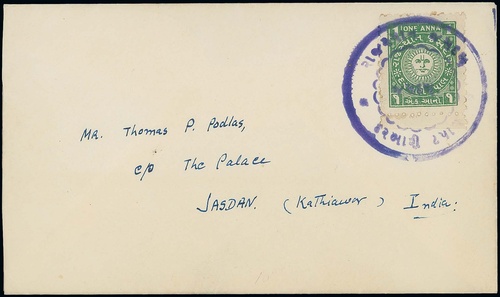 ONE ANNA
એક આનો
Mr. Thomas P. Podlas,
c/o The Palace
JASDAN. (Kathiawar) India.